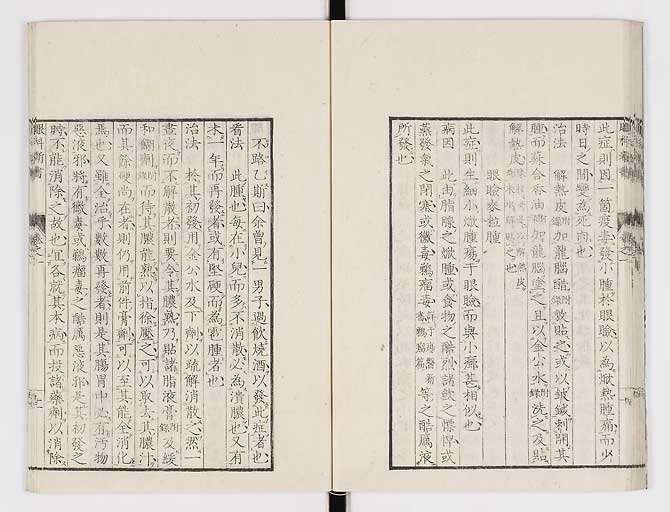 此症則因一箇疫毒發小腫於眼瞼以為焮熱腫痛而少
時日之間變為死肉也
治法 解熱皮附錄加龍腦醋附錄敷貼之或以鈹鍼刺開其
腫而蘇合香油附錄加龍腦塗之且以金公水附錄洗之及貼
解熱皮
眼瞼麥粒腫
此症則生細小焮腫瘍于眼瞼而與小癤甚相似也
病因 此由脂腺之焮腫或食物之酷烈諸飲之慓悍或
蒸發氣之閉塞或黴毒鶴瘤毒等之酷厲液
所發也
不路乙斯曰余曾見一男子過飲燒酒以發此症者也
看法 此腫也每在小兒而多不消散必為潰膿也又有
未一年而再發者或有堅硬而為䨟腫者也
治法 於其初發用金公水及下劑以疏解消散之然一
晝夜而不解散者則要令其膿熟乃貼諸脂液膏附錄及緩
和䐧劑附錄而待其膿能熟以指徐壓之可以取去其膿汁
而其餘硬尚在者則仍用前件膏劑可以至其能全消化
焉也又雖全治乎數數再發者則是其腸胃中必有汚物
惡液邪將有黴毒或鶴瘤毒之酷厲惡液邪是其初發之
時不能消除之故也宜各就其本病而投諸藥劑以消除